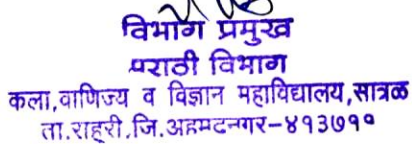 विभाग प्रमुख
मराठी विभाग
कला,वाणिज्य व विज्ञान महाविद्यालय,सात्रळ
ता.राहूरी,जि.अहमदनगर-४१३७११